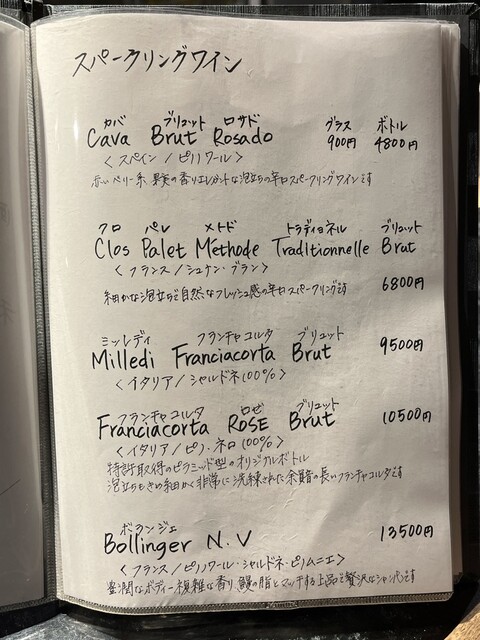 スパークリングワイン
カバ ブリュット ロサド グラス ボトル
Cava Brut Rosado 900円 4800円
<スペイン/ピノノワール>
赤いベリー系果実の香りエレガントな泡立ちの辛口スパークリングワインです
クロ パレ メトド トラディョネル ブリュット
Clos Palet Méthode Traditionnelle Brut
<フランス/シュナン・ブラン>
細かな泡立ちで自然なフレッシュ感の辛口スパークリングです 6800円
ミッレディ フランチャコルタ ブリュット
Milledi Franciacorta Brut 9500円
<イタリア/シャルドネ100%>
フランチャコルタ ロゼ ブリュット
Franciacorta ROSE Brut 10500円
<イタリア/ピノ・ネロ100%>
特許取得のピラミッド型のオリジナルボトル
泡立ちもきめ細かく非常に洗練された余韻の長いフランチャコルタです
ボランジェ
Bollinger N.V 13500円
<フランス/ピノノワール・シャルドネ・ピノムニエ>
豊潤なボディー複雑な香り、鰻の脂とマッチする上品で贅沢なシャンパンです